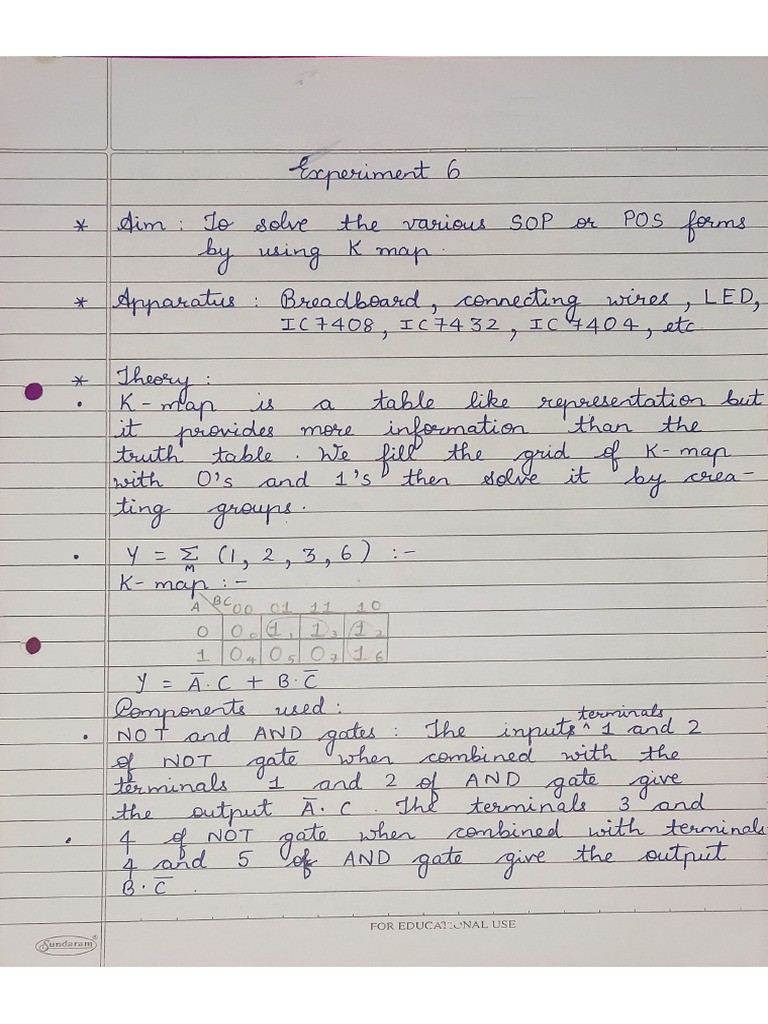 Experiment 6
* Aim : To solve the various SOP or POS forms
by using K map.
* Apparatus : Breadboard, connecting wires, LED,
IC7408, IC7432, IC7404, etc
* Theory :
• K-map is a table like representation but
it provides more information than the
truth table. We fill the grid of K-map
with 0's and 1's then solve it by crea-
ting groups.
• Y = Σ (1, 2, 3, 6) :-
M
K-map :-
A \ BC 00 01 11 10
0 0₀ 1₁ 1₃ 1₂
1 0₄ 0₅ 0₇ 1₆
Y = A̅.C + B.C̅
Components used :
• NOT and AND gates : The inputs ^terminals 1 and 2
of NOT gate when combined with the
terminals 1 and 2 of AND gate give
the output A̅.C. The terminals 3 and
• 4 of NOT gate when combined with terminals
4 and 5 of AND gate give the output
B.C̅.
Sundaram®
FOR EDUCATIONAL USE